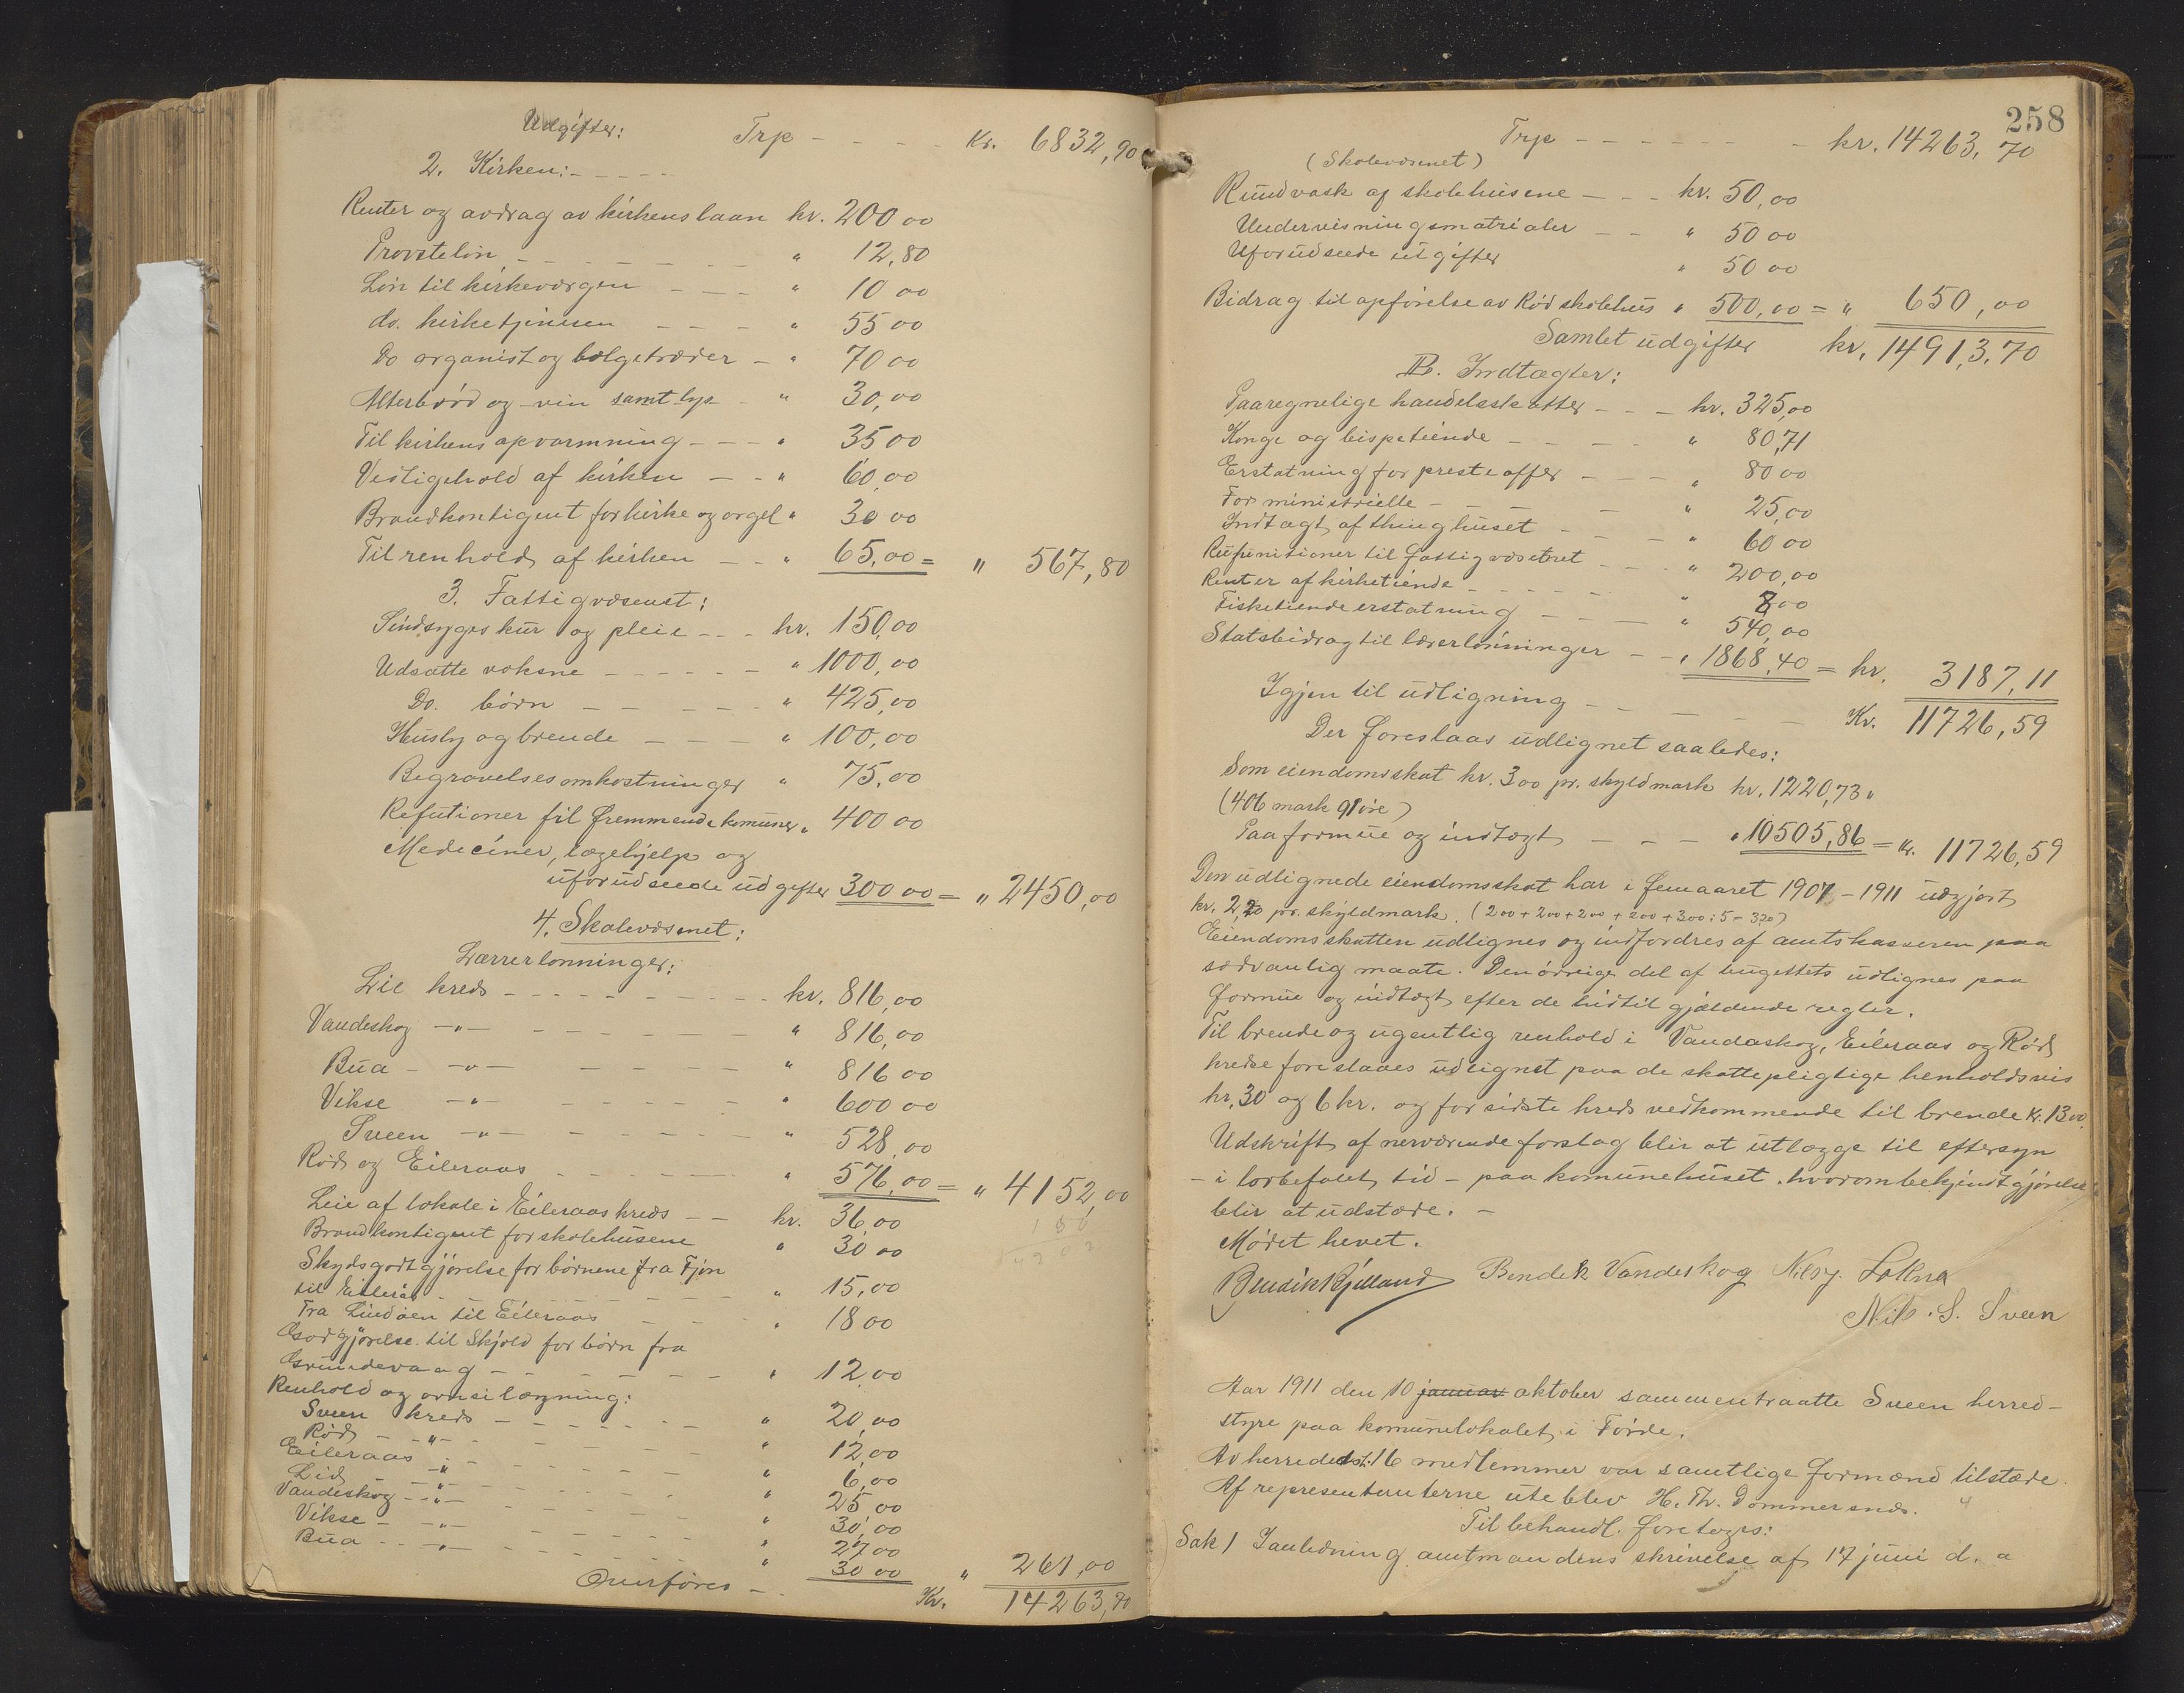 Udgifter: Trp - - - - Kr. 6832,90
2. Kirken: - - - -
Renter og avdrag av kirkens laan kr. 200 00
Provstelön - - - - - - " 12,80
Lön til kirkeværgen - - - " 10 00
do. kirketjeneren - - - " 55 00
Do organist og bælgetræder - " 70 00
Alterbröd og -vin samt lys - " 30,00
Til kirkens opvarmning - - - " 35 00
Vedligehold af kirken - - " 60,00
Brandkontigent for kirke og orgel " 30 00
Til renhold af kirken - - " 65,00 = " 567,80
3. Fattigvæsenet:
Sindsyges kur og pleie - - - kr. 150,00
Udsatte voksne - - - - - " 1000,00
Do. börn - - - - - " 425,00
Husly og brende - - - " 100,00
Begravelsesomkostninger " 75,00
Refutioner til fremmende komuner " 400 00
Mediciner, lægehjelp og
uforudseede udgifter 300 00 = " 2450,00
4. Skolevæsnet:
Lærrerlønninger:
Lie kreds - - - - - - - - kr. 816,00
Vandeskog -"- - - - - - - " 816,00
Bua - -"- - - - - - " 816 00
Vikse -"- - - - - - " 600 00
Sveen -"- - - - - - " 528,00
Röd og Eileraas - - - - - " 576,00 = " 4152,00
Leie af lokale i Eileraas kreds - - kr. 36,00
Brandkontigent for skolehusene " 30 00
Skydsgodtgjörelse for börnene fra Fjon
til Eileraas - - - - - - - " 15,00
Fra Lindöen til Eileraas - - " 18 00
Godtgjörelse til Skjold for börn fra
Grindevaag - - - - - - " 12,00
Renhold og ovnsilægning:
Sveen kreds - - - - - - " 20,00
Röd - -"- - - - - - " 12,00
Eileraas -"- - - - - - " 6,00
Lid -"- - - - - - " 25,00
Vandeskog - -"- - - - - " 30,00
Vikse - -"- - - - - - " 27 00
Bua - - -"- - - - - - " 30 00 " 261,00
Overföres - - Kr. 14263,70
258
Trp - - - - - - - kr. 14263,70
(Skolevæsenet)
Rundvask af skolehusene - - - kr. 50,00
Undervisningsmatrialer - - " 50 00
Uforudseede utgifter " 50 00
Bidrag til opförelse av Röd skolehus " 500,00 = " 650,00
Samlet udgifter kr. 14913,70
B. Indtægter:
Paaregnelige handelsskatter - - - kr. 325,00
Konge og bispetiende - - - - " 80,71
Erstatning for presteoffer - - - " 80 00
For ministrielle - - - - " 25,00
Indtægt af thinghuset - - - - " 60 00
Refunitioner til fattigvæsenet - - - " 200,00
Renter af kirketiende - - - - - " 8,00
Fisketiendeerstatning - - - - " 540,00
Statsbidrag til lærerlönninger - - " 1868,40 = kr. 3187,11
Igjen til udligning - - - - - Kr. 11726,59
Der foreslaas udlignet saaledes:
Som eiendomsskat kr. 3 00 pr. skyldmark kr. 1220,73 "
(406 mark 91 öre)
Paa formue og indtægt - - - " 10505,86 = Kr. 11726,59
Den udlignede eiendomsskat har i femaaret 1907-1911 udgjort
kr. 2,20 pr. skyldmark. (2 00 + 2 00 + 2 00 + 2 00 + 3 00 : 5 = 2 20)
Eiendomsskatten udlignes og indfordres af amtskasseren paa
sædvanlig maate. Den övrige del af bugettets udlignes paa
formue og indtægt efter de hidtil gjældende regler.
Til brende og ugentlig renhold i Vandaskog, Eileraas og Röd
kredse foreslaaes udlignet paa de skattepligtige henholdsvis
kr. 30 og 6 kr. og for sidste kreds vedkommende til brende kr. 13 00.
Udskrift af nerværende forslag blir at utlægge til eftersyn
- i lovbefalet tid - paa komunehuset, hvorom bekjendtgjörelse
blir at udstæde. -
Mödet hevet.
Bendik Kjilland Bendik Vandeskog Nils J. Lokna
Nils S. Sveen
Aar 1911 den 10 januar oktober sammentraatte Sveen herred-
styre paa komunelokalet i Förde.
Av herredsst. 16 medlemmer var samtlige formænd tilstæde.
Af representanterne uteblev H. Th. Dommersnes.
Til behandl. foretoges:
Sak 1 I anledning amtmandens skrivelse af 17 juni d. a